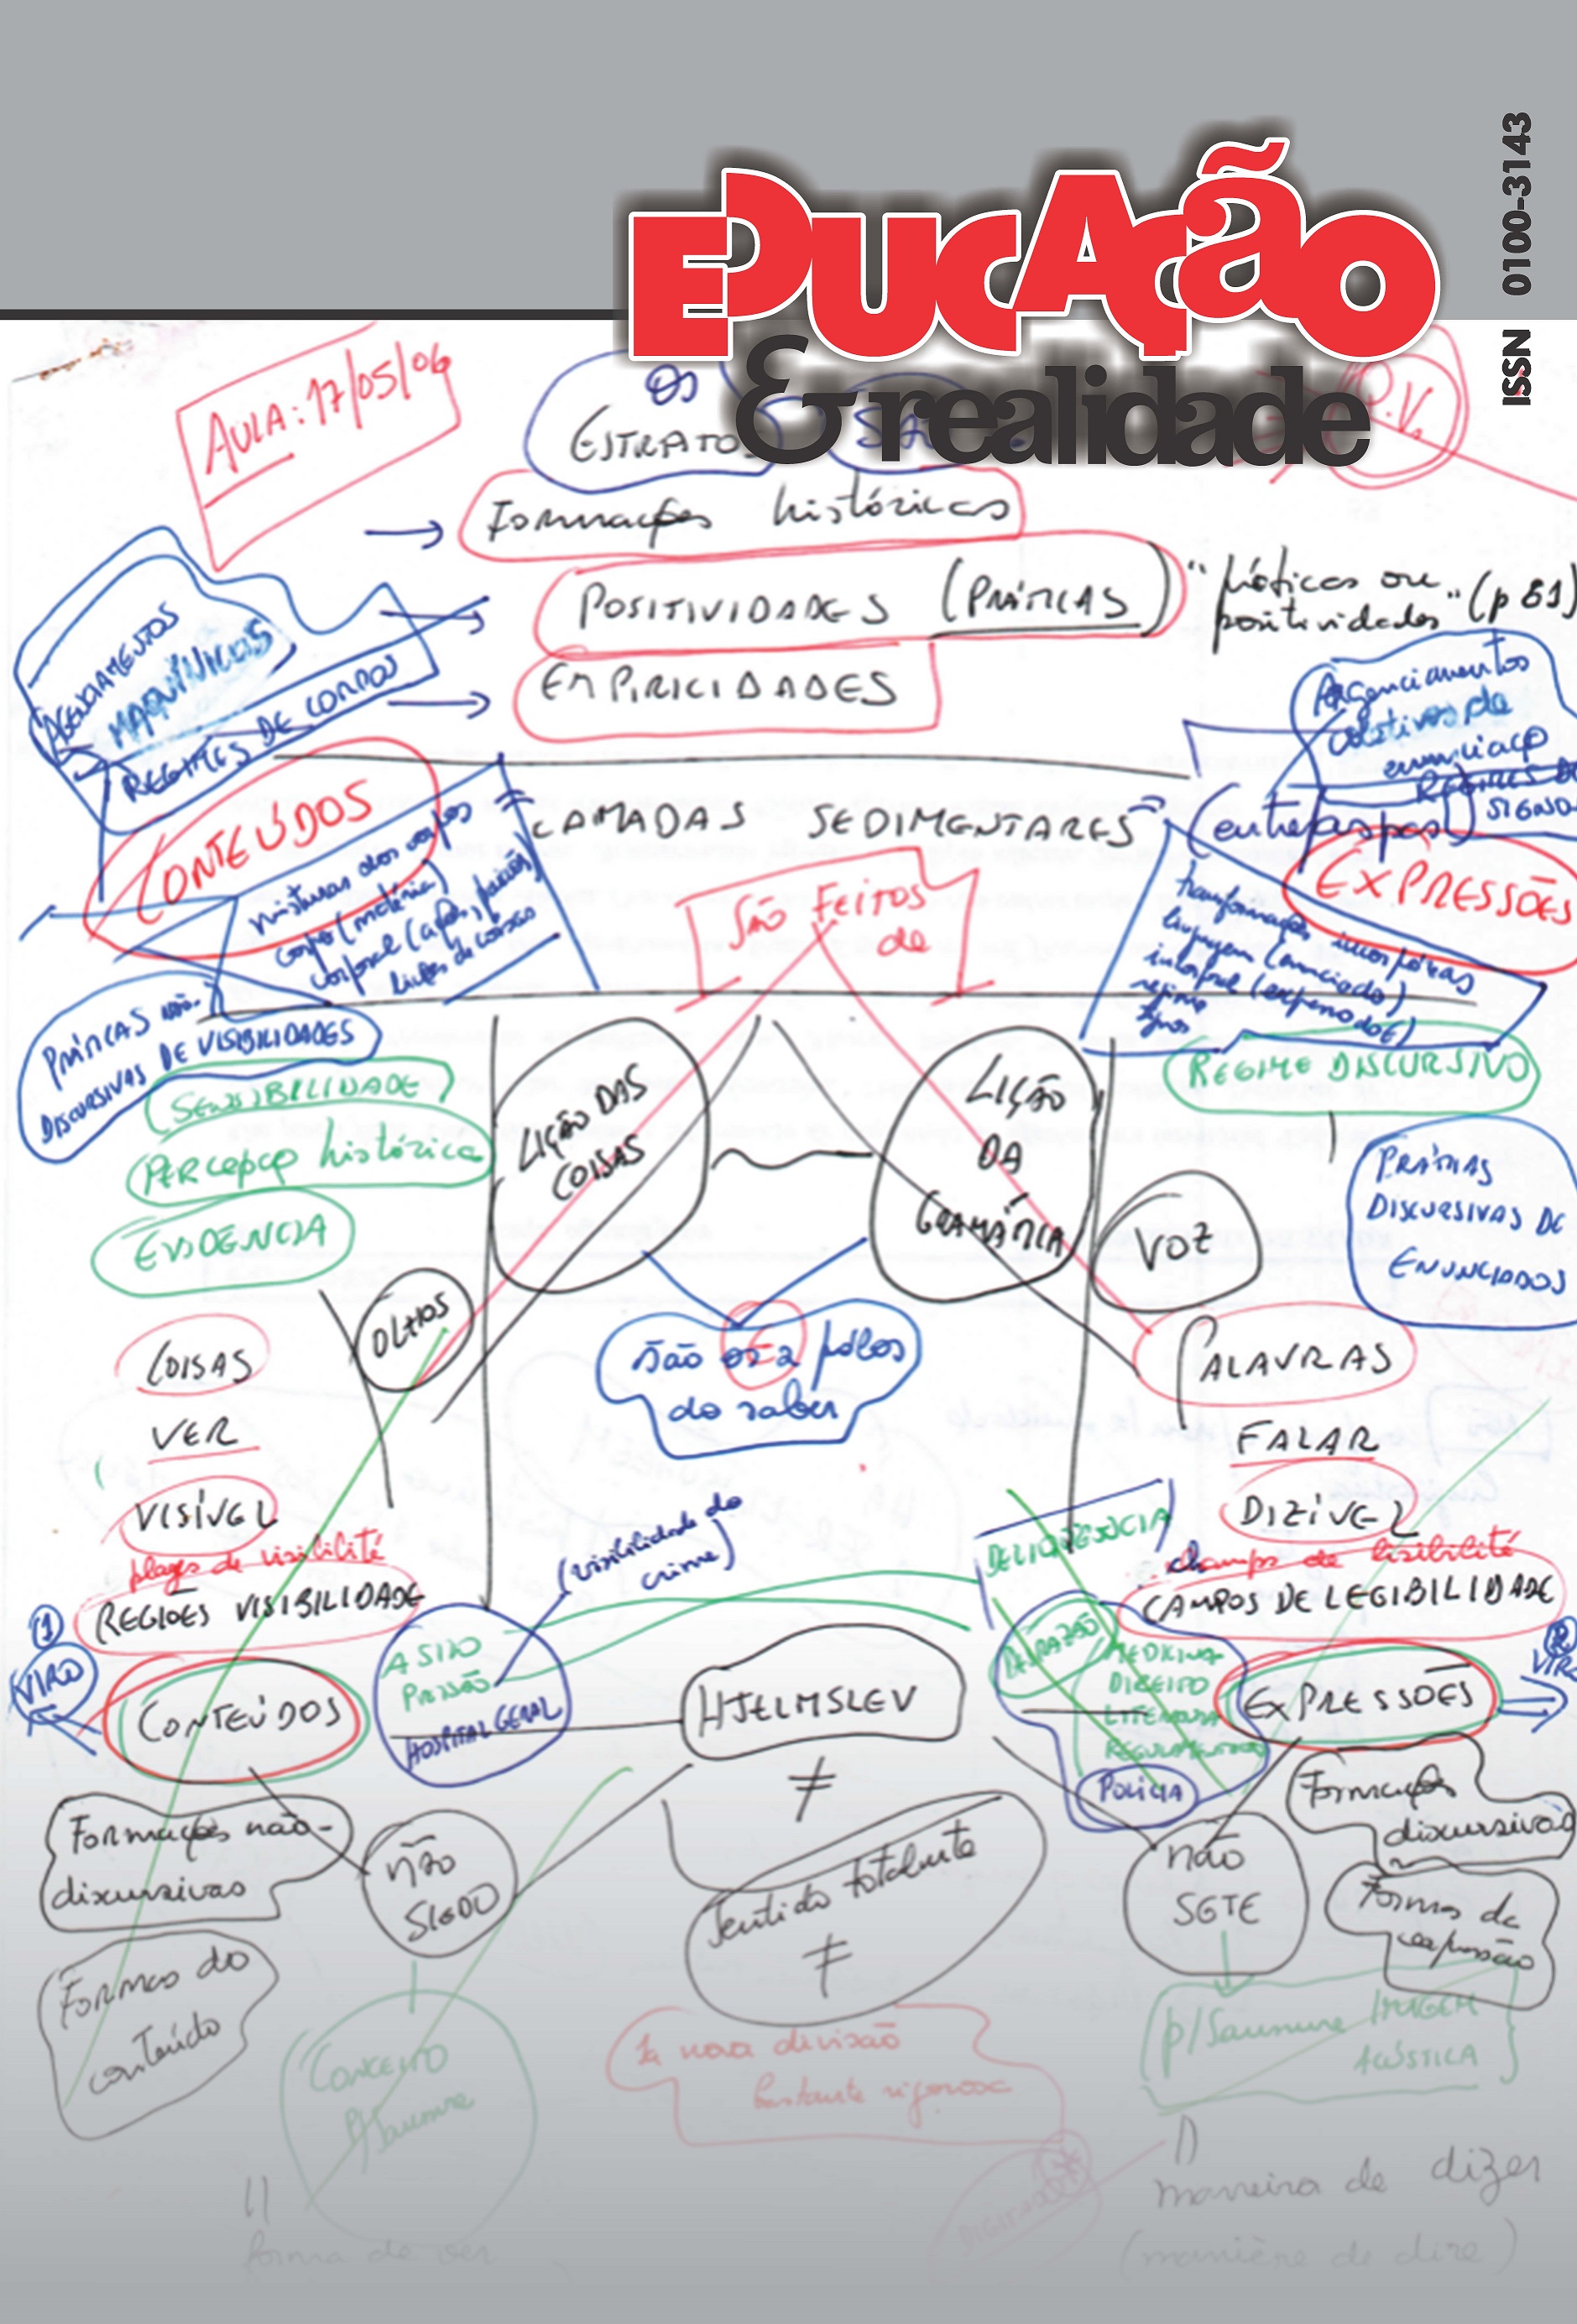 EDUCAÇÃO
& realidade
ISSN 0100-3143
AULA: 17/05/06
OS
ESTRATOS
Formações históricas
POSITIVIDADES (PRÁTICAS)
"práticas ou
positividades" (p 81)
EMPIRICIDADES
AGENCIAMENTOS
MAQUÍNICOS
REGIMES DE CORPOS
Agenciamentos
coletivos de
enunciação
REGIMES DE
SIGNOS
"CAMADAS SEDIMENTARES"
(entre aspas)
CONTEÚDOS
misturas dos corpos
corpo (matéria)
EXPRESSÕES
linguagem (enunciado)
SÃO FEITOS
de
PRÁTICAS NÃO-
DISCURSIVAS DE VISIBILIDADES
SENSIBILIDADE
PERCEPÇÃO histórica
EVIDENCIA
LIÇÃO DAS
COISAS
LIÇÃO
DA
GRAMÁTICA
REGIME DISCURSIVO
PRÁTICAS
DISCURSIVAS DE
ENUNCIADOS
OLHOS
VOZ
São os 2 pólos
do saber
COISAS
VER
VISÍVEL
plages de visibilité
REGIÕES VISIBILIDADE
PALAVRAS
FALAR
DIZÍVEL
champs de lisibilité
CAMPOS DE LEGIBILIDADE
(visibilidade do
crime)
DELINQUENCIA
(1)
VIRO
CONTEÚDOS
ASILO
PRISSÃO
HOSPITAL GERAL
HJELMSLEV
≠
DESRAZÃO
MEDICINA
DIREITO
LITERATURA
REGULAMENTOS
POLÍCIA
EXPRESSÕES
(2)
VIRO
Formações não-
discursivas
não
SIGDO
Sentido totalmente
≠
não
SGTE
Formações
discursivas
Formas do
conteúdo
Formas de
expressão
CONCEITO
P/Saussure
nova divisão
bastante rigorosa
p/Saussure IMAGEM
ACÚSTICA
forma de ver
maneira de dizer
(manière de dire)